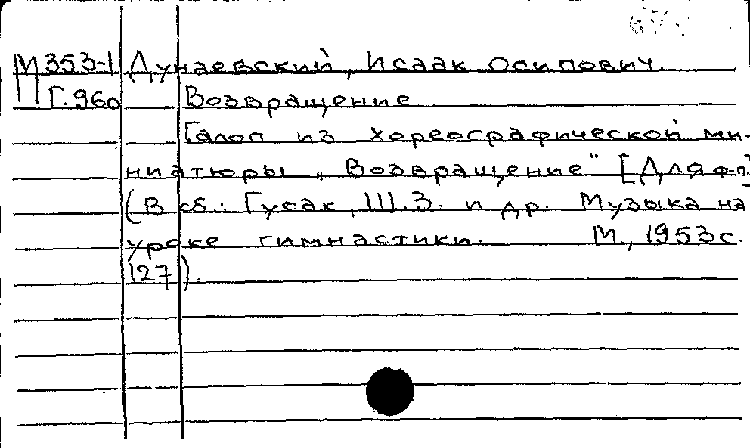 М353-1 Дунаевский, Исаак Осипович.
П Г.960 Возвращение
Галоп из хореографической ми-
ниатюры „Возвращение" [Для ф-п]
(В сб.: Гусак, Ш.З. и др. Музыка на
уроке гимнастики. М., 1953 с.
127).